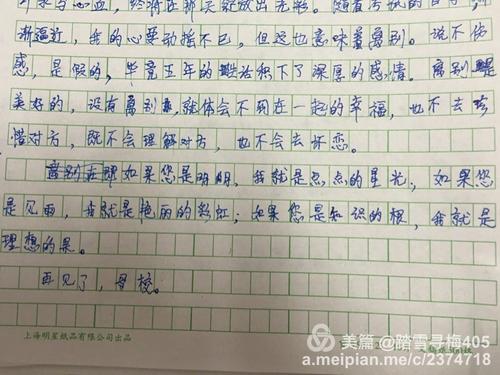 渐逼近，我的心要动摇不已，但这也意味着离别。说不伤
感，是假的，毕竟五年的生活积下了深厚的感情。离别是
美好的，没有离别，就体会不到在一起的幸福，也不去珍
惜对方，既不会理解对方，也不会去怀恋。
如果您是明月，我就是点点的星光，如果您
是风雨，我就是艳丽的彩虹；如果您是知识的根，我就是
理想的果。
再见了，母校。
上海明星纸品有限公司出品
美篇@踏雪寻梅405
a.meipian.me/c/2374718